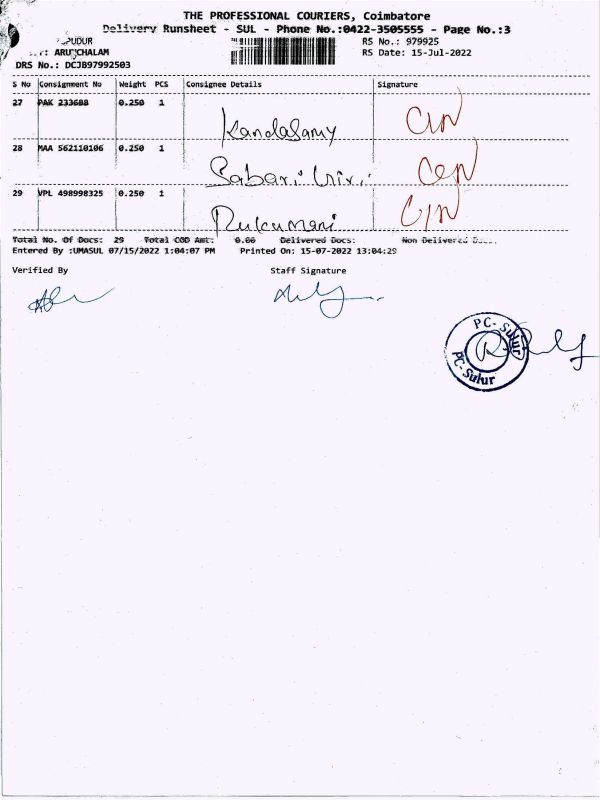 THE PROFESSIONAL COURIERS, Coimbatore
Delivery Runsheet - SUL - Phone No.:0422-3505555 - Page No.:3
RS No.: 979925
ARUNCHALAM
RS Date: 15-Jul-2022
DRS No.: DCJB97992503
S No Consignment No Weight PCS Consignee Details Signature
27 PAK 233688 0.250 1 Kandasamy
28 MAA 562110106 0.250 1 Sabari
29 VPL 498998325 0.250 1 Rukumani
Total No. Of Docs: 29 Total COD Amt: 0.00 Delivered Docs: Non Delivered
Entered By :UMASUL 07/15/2022 1:04:07 PM Printed On: 15-07-2022 13:04:29
Verified By Staff Signature
PC-Sulur
PC-Sulur